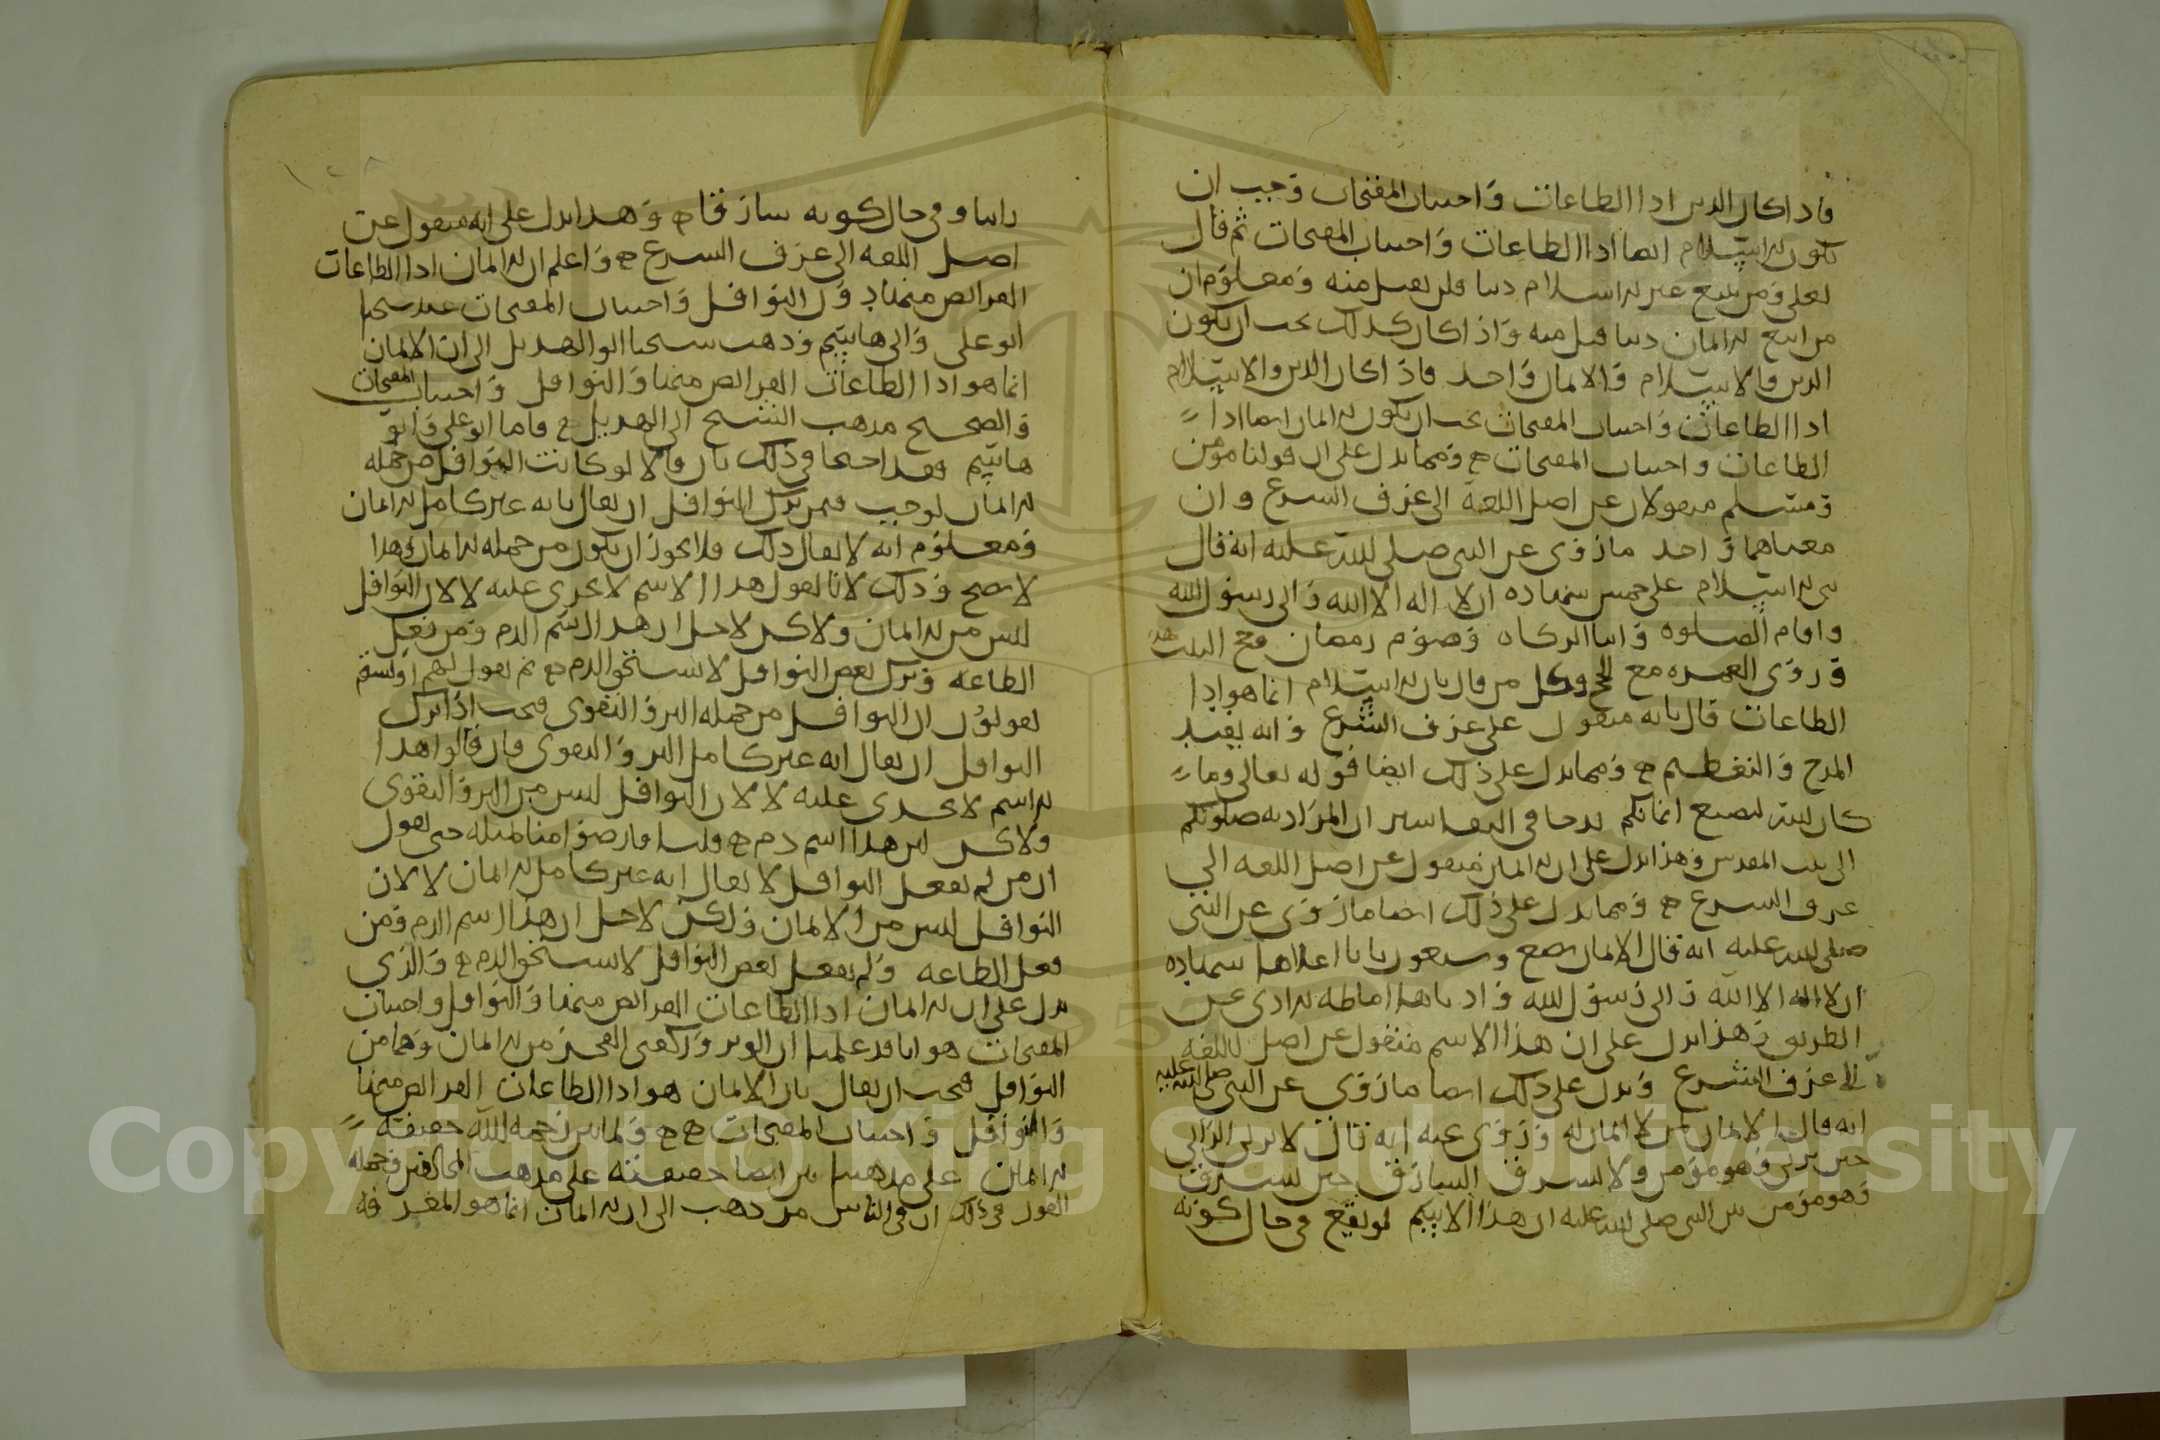 فاذا كان الدين اداا الطاعات واجتناب المقبحات وجب ان
يكون الاسلام ايضا اداا الطاعات واجتناب المقبحات ثم قال
تعلى ومن يبتغ غير الاسلام دينا فلن يقبل منه ومعلوم ان
من ابتغ الايمان دينا قبل منه واذا كان كذلك يجب ان يكون
الدين والاسلام والايمان واحد فاذا كان الدين والاسلام
اداا الطاعات واجتناب المقبحات يجب ان يكون الايمان ايضا ادا
الطاعات واجتناب المقبحات ومما يدل على ان قولنا مومن
ومسلم منقولان عن اصل اللغة الى عرف الشرع وان
معناهما واحد ماروى عن النبي صلى الله عليه انه قال
بنى الاسلام على خمس شهاده ان لا اله الا الله واني رسول الله
واقام الصلوه وايتا الزكاه وصوم رمضان وحج البيت
وروى العمره مع الحج وكل من قال بان الاسلام انما هو ادا
الطاعات قال بانه منقول على عرف الشرع وانه يفيد
المدح والتعظيم ومما يدل على ذلك ايضا قوله تعالى وما
كان الله ليضيع ايمانكم فدجا في التفاسير ان المراد به صلوتكم
الى بيت المقدس وهذا يدل على ان الايمان منقول عن اصل اللغه الى
عرف الشرع ومما يدل على ذلك ايضا ماروى عن النبي
صلى الله عليه انه قال الايمان بضع وسبعون بابا اعلاها شهاده
ان لا اله الا الله واني رسول الله وادناها اماطه الاذى عن
الطريق وهذا يدل على ان هذا الاسم منقول عن اصل اللغه
الى عرف الشرع ويدل على ذلك ايضا ماروى عن النبي صلى الله عليه
انه قال لا ايمان لمن لا امان له وروى عنه انه قال لا يزني الزاني
حين يزني وهو مومن ولا يسرق السارق حين يسرق
وهو مومن بين النبي صلى الله عليه ان هذا الاسم لم يقع في حال كونه
زانيا وفي حال كونه سارقا وهذا يدل على انه منقول عن
اصل اللغه الى عرف الشرع واعلم ان الايمان اداا الطاعات
الفرائض منها دون النوافل واجتناب المقبحات عند شيخينا
ابو على وابي هاشم وذهب شيخنا ابو الهذيل الى ان الايمان
انما هو اداا الطاعات الفرائض منها والنوافل واجتناب المقبحات
والصحيح مذهب الشيخ ابي الهذيل فاما ابو علي وابو
هاشم فقد احتجا في ذلك بان قالا لو كانت النوافل من جمله
الايمان لوجب فيمن ترك النوافل ان يقال بانه غير كامل الايمان
ومعلوم انه لا يقال ذلك فلا يجوز ان يكون من جمله الايمان وهذا
لا يصح وذلك لانا نقول هذا الاسم لا يجرى عليه لا لان النوافل
ليس من الايمان ولاكن لاجل ان هذا اسم الذم ومن فعل
الطاعه وترك بعض النوافل لا يستحق الذم ثم نقول لهم اولستم
تقولون ان النوافل من جمله البر والتقوى فيجب اذا ترك
النوافل ان يقال انه غير كامل البر والتقوى فان قالوا هذا
الاسم لا يجرى عليه لا لان النوافل ليس من البر والتقوى
ولاكن لان هذا اسم ذم قلنا فارضوا منا لمثله حتى نقول
ان من لم يفعل النوافل لا يقال انه غير كامل الايمان لا لان
النوافل ليس من الايمان ولكن لاجل ان هذا اسم الذم ومن
فعل الطاعه ولم يفعل بعض النوافل لا يستحق الذم والذي
يدل على ان الايمان اداا الطاعات الفرائض منها والنوافل واجتناب
المقبحات هو انا قد علمنا ان الوتر وركعتي الفجر من الايمان وهما من
النوافل فيجب ان يقال بان الايمان هو اداا الطاعات الفرائض منها
والنوافل واجتناب المقبحات ولما بين رحمه الله حقيقة
الايمان على مذهبنا بين ايضا حقيقته على مذهب المخالفين وجمله
القول في ذلك ان في الناس من ذهب الى ان الايمان انما هو المعرفه